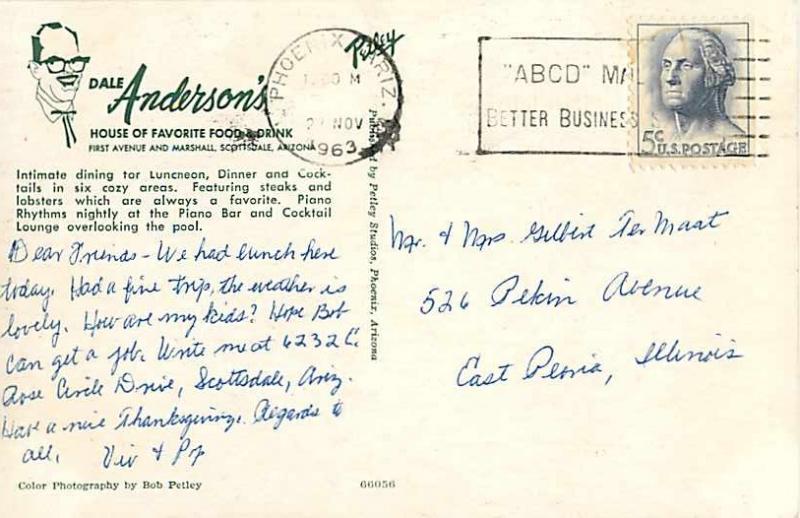 DALE
Anderson's
HOUSE OF FAVORITE FOOD & DRINK
FIRST AVENUE AND MARSHALL, SCOTTSDALE, ARIZONA
Intimate dining for Luncheon, Dinner and Cock-
tails in six cozy areas. Featuring steaks and
lobsters which are always a favorite. Piano
Rhythms nightly at the Piano Bar and Cocktail
Lounge overlooking the pool.
Dear Friends - We had lunch here
today. Had a fine trip, the weather is
lovely. How are my kids? Hope Bob
can get a job. Write me at 6232 E.
Rose Circle Drive, Scottsdale, Ariz.
Have a nice Thanksgiving. Regards to
all, Viv & Pop
Color Photography by Bob Petley
66056
Petley
Published by Petley Studios, Phoenix, Arizona
PHOENIX, ARIZ.
NOV
1963
"ABCD"
BETTER BUSINESS
5c
U.S. POSTAGE
Mr. & Mrs. Gilbert Ter Maat
526 Pekin Avenue
East Peoria, Illinois